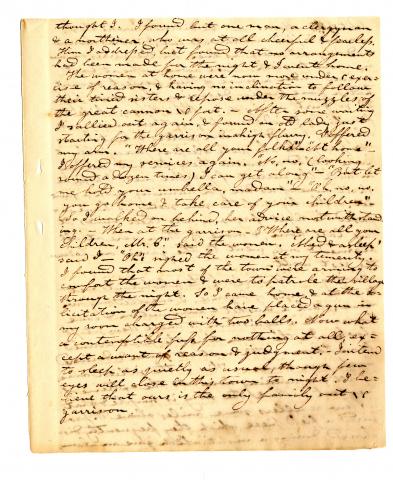 thought I. I found but one man, a clergyman
& a northerner, who was at all cheerful & fearless,
Him I addressed, but found that no arrangements
had been made for the night & I went home.
The women at home were now more under exer-
cise of reason, & having no inclination to follow
their tired sisters & repose under the muzzles of
the great cannon, sat. After some waiting
I sallied out again, & found an old lady just
starting for the garrison in a high flurry, I offered
my arm. "Where are all your folks" "At home"
I offered my services again. "No, no, (looking
round a dozen times) I can get along" "But let
me hold your umbrella, madam" "Oh no, no,
you go home, & take care of your children"
So I walked on behind, her advice notwithstand
ing. — Then at the garrison — "Where are all your
children, Mr. C" said the women, "Abed & asleep"
said I — "Oh" sighed the women at my temerity.
I found that most of the town were arming to
comfort the women & were to patrole the village
through the night. So I came home & at the so-
licitation of the women have placed a gun in
my room charged with two balls. Now what
a contemptible fuss for nothing at all, ex-
cept a want of reason & judgment. — I intend
to sleep as quietly as usual, though few
eyes will close in this town to night. I be-
lieve that ours is the only family out of
garrison